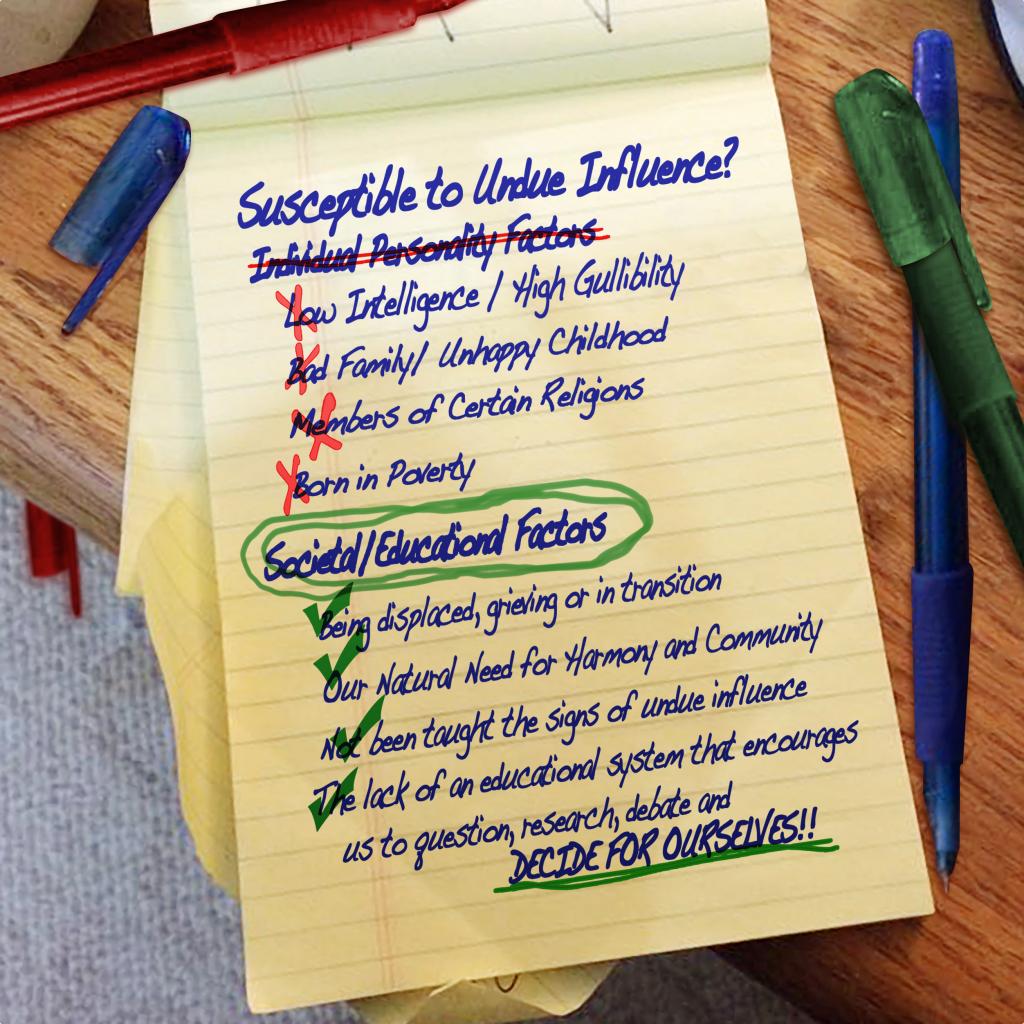 Susceptible to Undue Influence?
Individual Personality Factors
Low Intelligence / High Gullibility
Bad Family/ Unhappy Childhood
Members of Certain Religions
Born in Poverty
Societal/Educational Factors
Being displaced, grieving or in transition
Our Natural Need for Harmony and Community
Not been taught the signs of undue influence
The lack of an educational system that encourages
us to question, research, debate and
DECIDE FOR OURSELVES!!